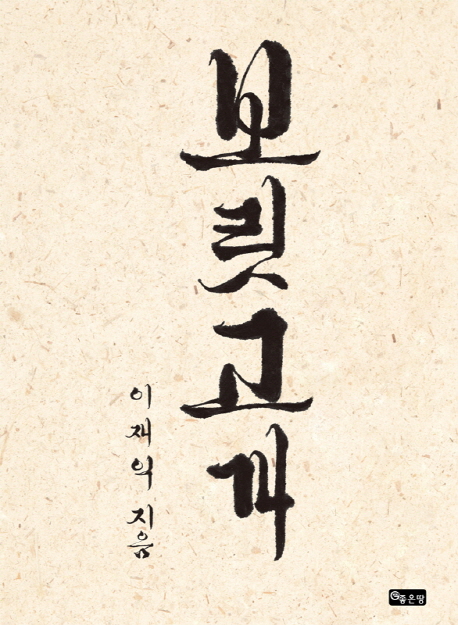 보릿고개
이재익 지음
좋은땅